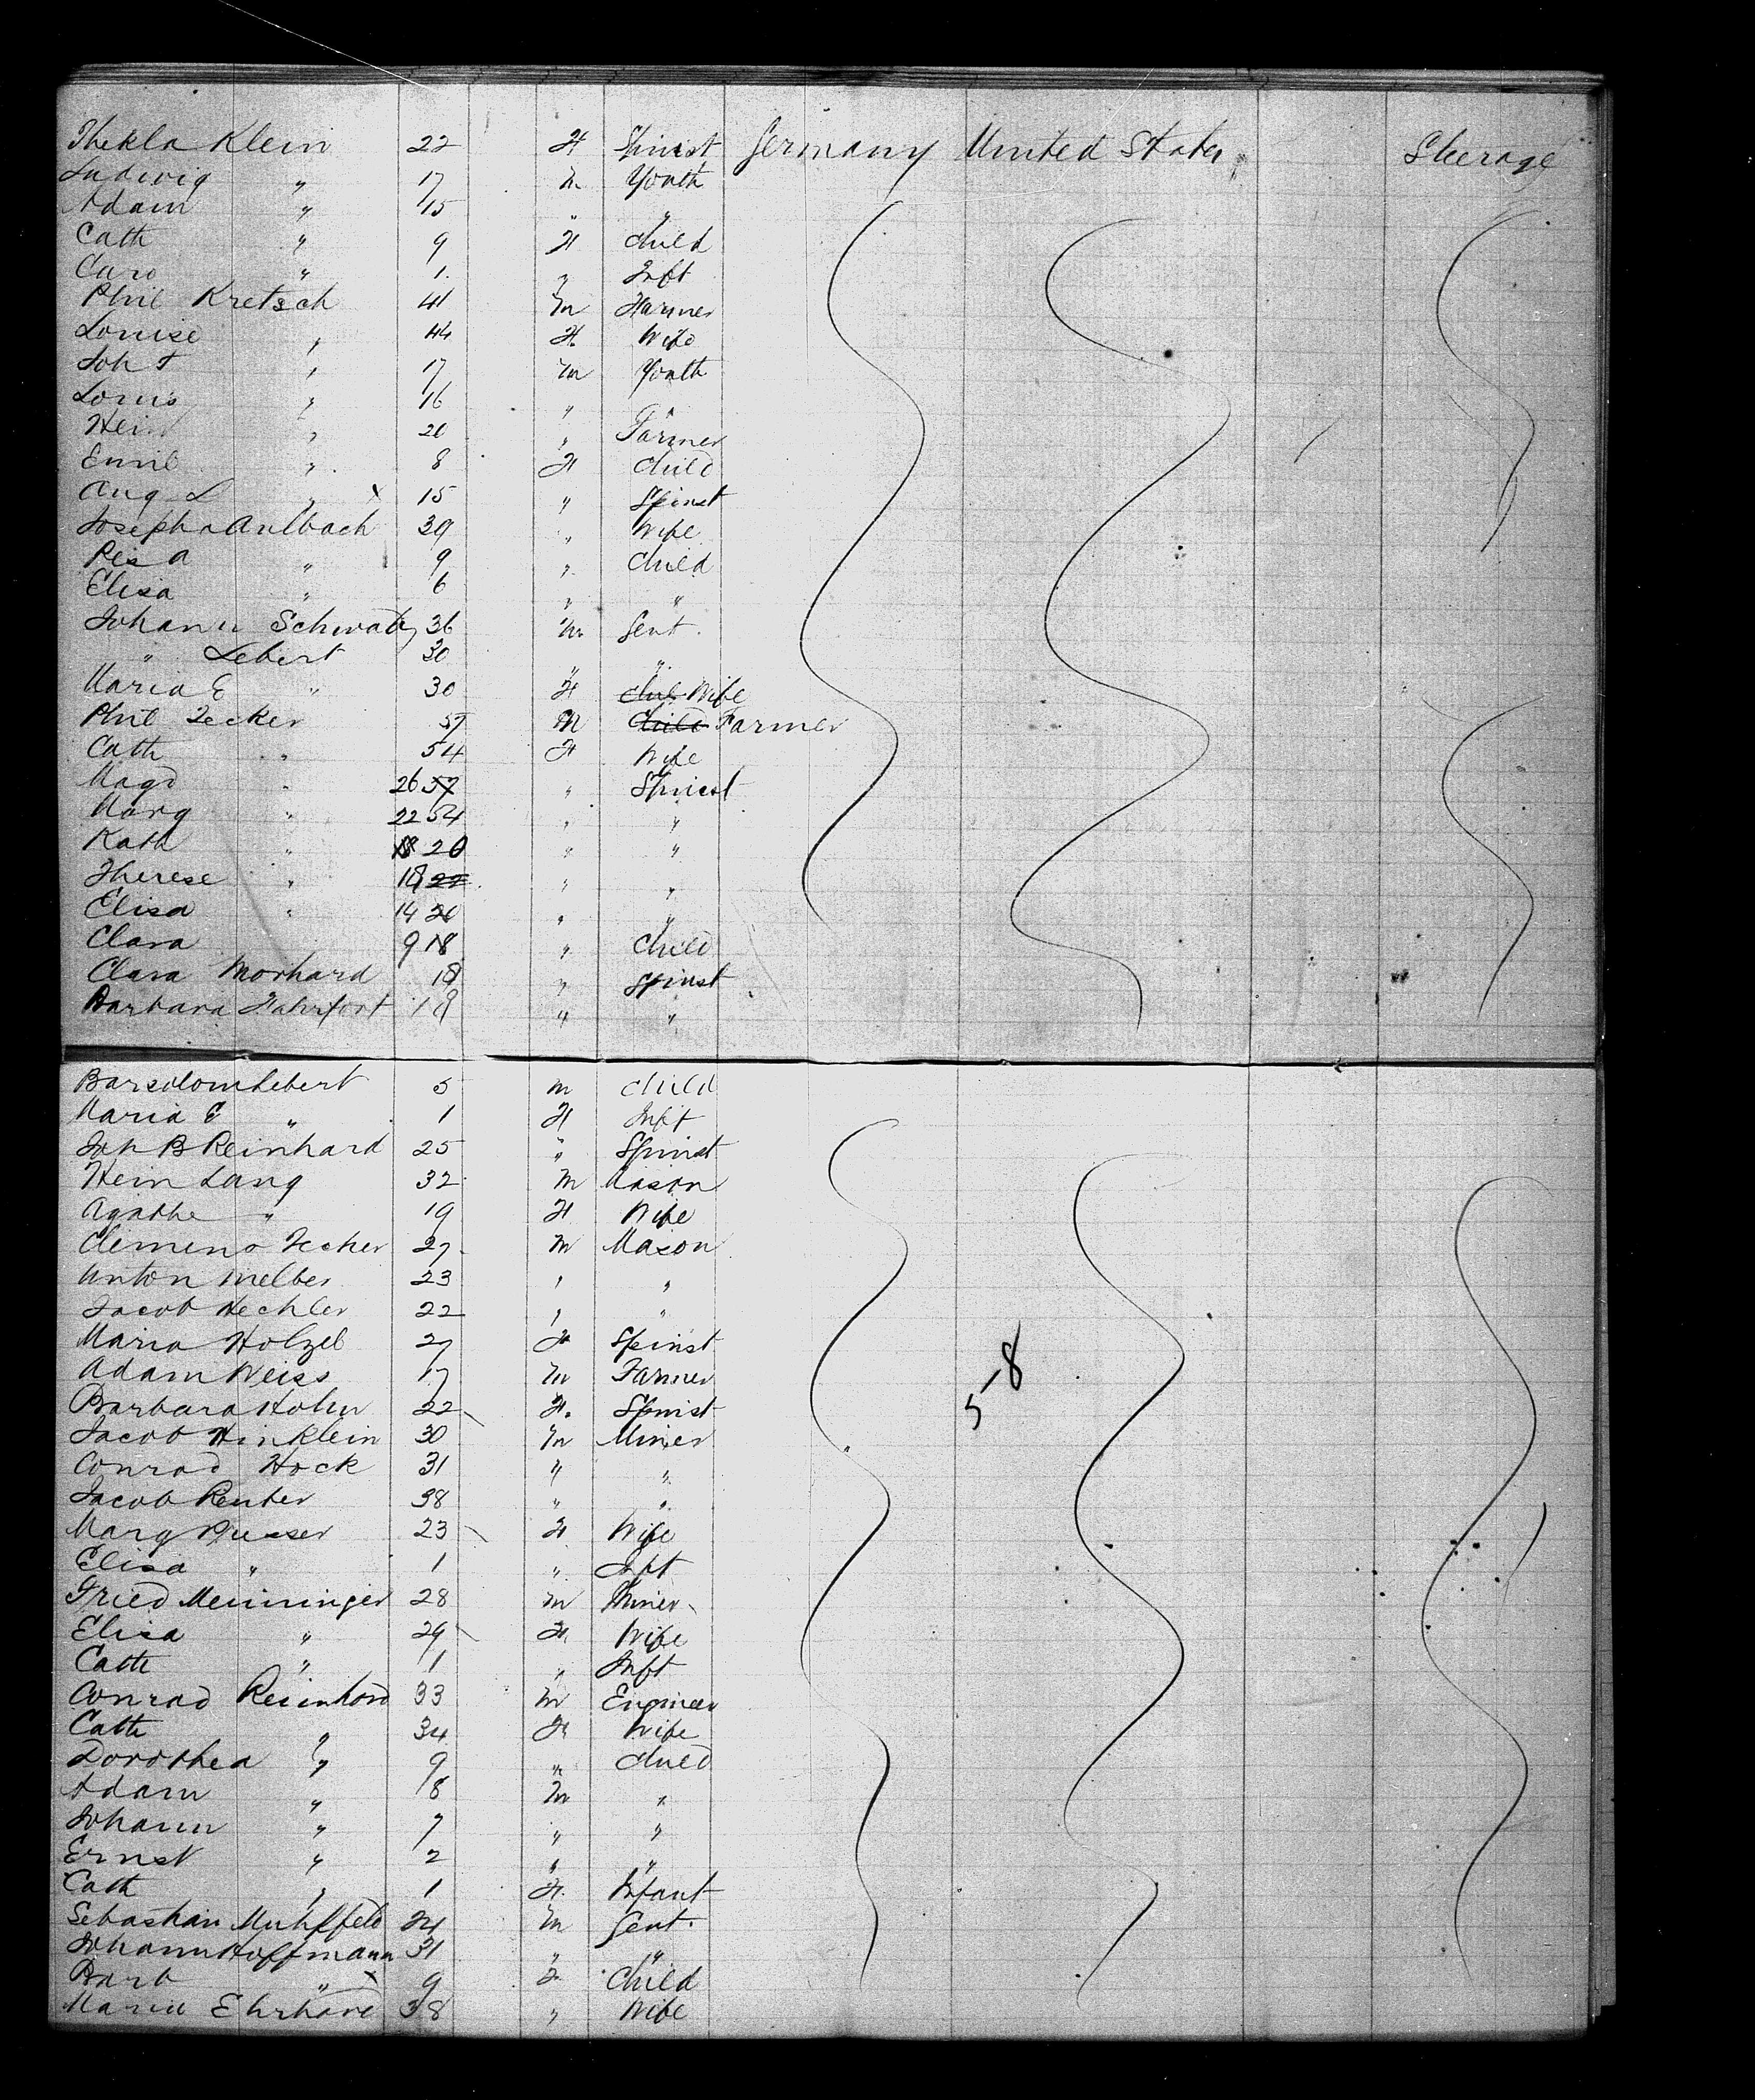 Thekla Klein 22 F Spinst Germany United States Steerage
Ludwig " 17 m Youth
Adam " 15 " "
Cath " 9 F Child
Caro " 1 " Inft
Phil Kretsch 41 m Farmer
Louise " 44 F Wife
Joh F " 17 m Youth
Louis " 16 " "
Hein " 20 " Farmer
Emil " 8 F Child
Aug L " 15 " Spinst
Josepha Aulbach 39 " Wife
" 9 " Child
Elisa " 6 " "
Johann Schwab 36 m Gent.
" Lebert 30 " "
Maria E " 30 F Wife
Phil Zecker 57 M Child Farmer
Cath " 54 F Wife
Magd " 26 57 " Spinst
Marg " 22 54 " "
Kath " 18 20 " "
Therese " 18 22 " "
Elisa " 14 20 " "
Clara 9 18 " Child
Clara Morhard 18 " Spinst
Barbara Fahrfort 18 " "
Lebert 5 m Child
Maria E " 1 F Inft
Joh B Reinhard 25 " Spinst
Hein Lang 32 m Mason
Agathe " 19 F Wife
Clemens Zecher 27 m Mason
Anton Melber 23 " "
Jacob Hechler 22 " "
Maria Holzel 27 F Spinst
Adam Weiss 17 m Farmer
Barbara Hohn 22 F. Spinst
Jacob Hinklein 30 m Miner
Conrad Hock 31 " "
Jacob Reuter 38 " "
Marg 23 F Wife
Elisa " 1 " Inft
Fried Meininger 28 m Miner
Elisa " 29 F Wife
Cath " 1 " Inft
Conrad Reinhard 33 m Engineer
Cath " 34 F Wife
Dorothea " 9 " Child
Adam " 8 m "
Johann " 7 " "
Ernst " 2 " "
Cath " 1 F. Infant
Sebastian Muhlfeld 24 m Gent.
Johann Hoffmann 31 " "
Barb " 9 F Child
Maria Ehrhard 38 " Wife
5-8